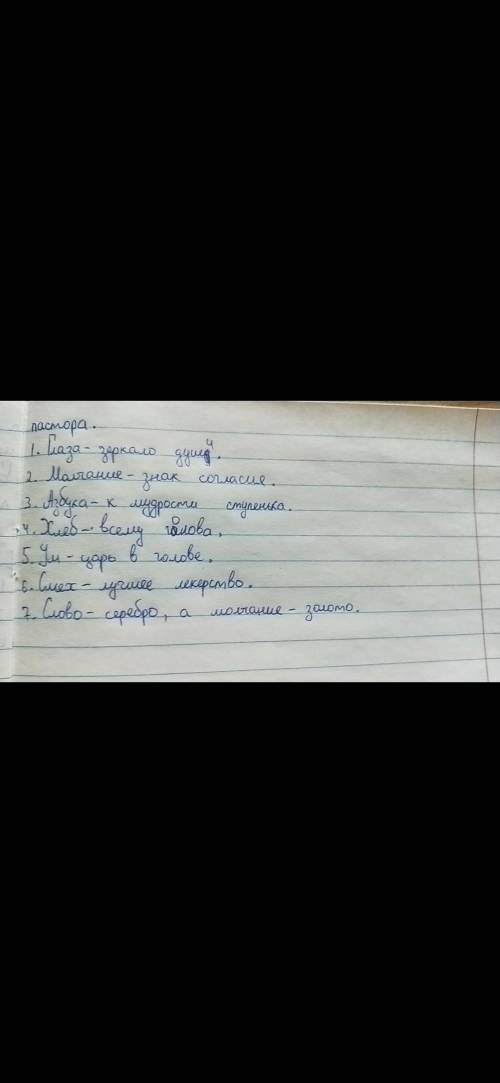 пастора.
1. Глаза - зеркало души.
2. Молчание - знак согласие.
3. Азбука - к мудрости ступенька.
4. Хлеб - всему голова,
5. Ум - царь в голове.
6. Смех - лучшее лекерство.
7. Слово - серебро, а молчание - золото.